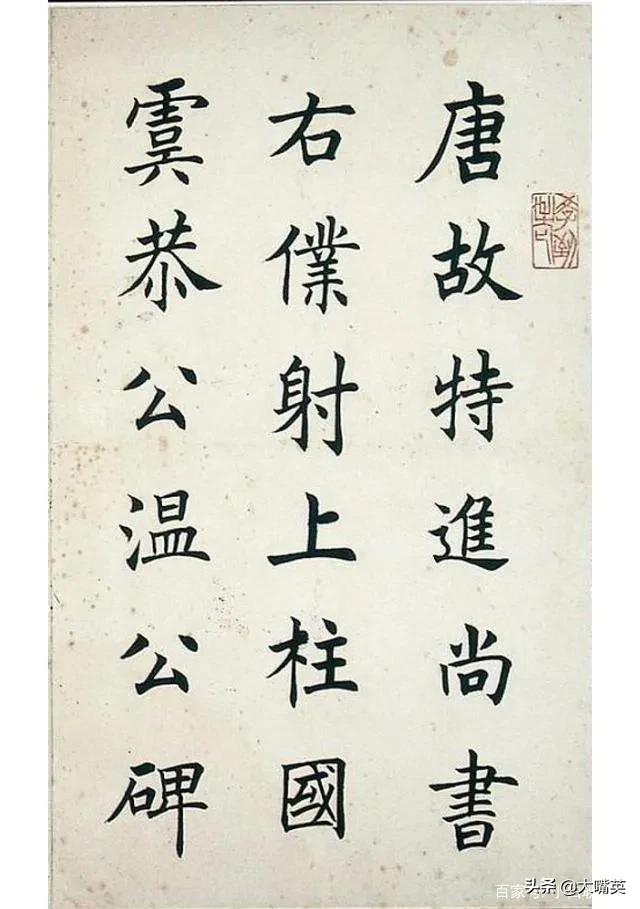 唐故特進尚書
右僕射上柱國
虞恭公温公碑
头条 @大嘴英